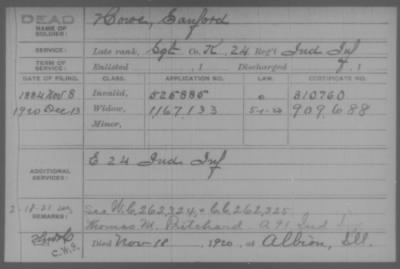 DEAD
NAME OF SOLDIER: Howe, Sanford
SERVICE: Late rank, Sgt Co. K, 24 Reg't Ind Inf
TERM OF SERVICE: Enlisted , 1 Discharged , 1
DATE OF FILING. CLASS. APPLICATION NO. LAW. CERTIFICATE NO.
1884 Nov 8 Invalid, 525885 310760
1920 Dec 13 Widow, 1167133 5-1-20 909688
Minor,
ADDITIONAL SERVICES: E 24 Ind Inf
2-18-21
REMARKS: See W.C. 262,324, + C.C. 262,325
Thomas M. Pritchard A 91 Ind
C.W.S.
Died Nov 18, 1920, at Albion, Ill.